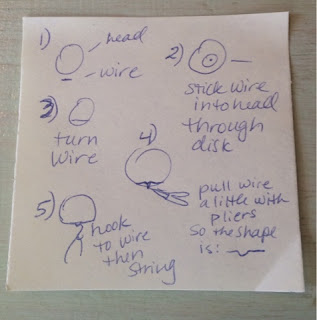 1)
head
wire
2)
stick wire
into head
through
disk
3)
turn
wire
4)
pull wire
a little with
pliers
so the shape
is:
5)
hook
to wire
then
string